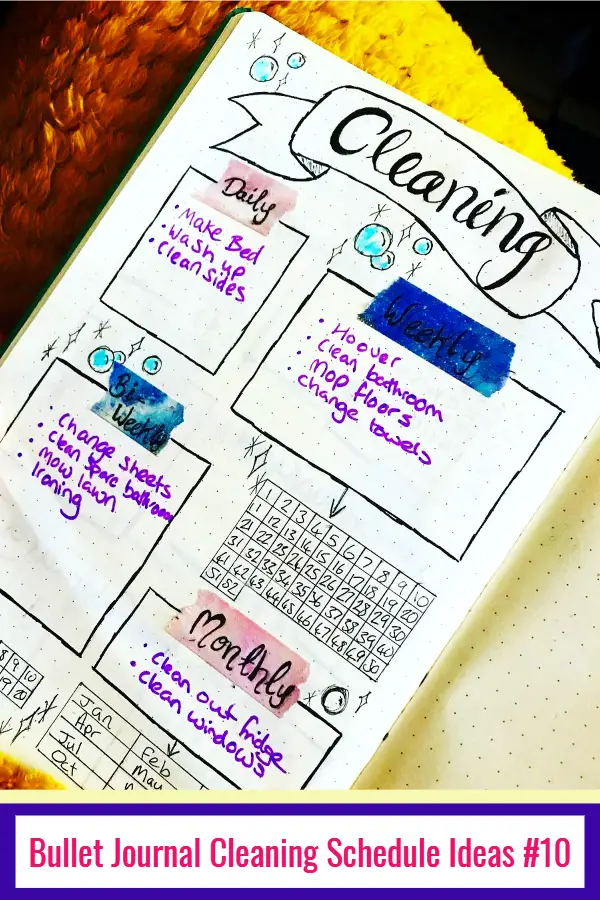 Cleaning
Daily
• Make Bed
• Wash up
• Clean sides
Weekly
• Hoover
• Clean bathroom
• Mop floors
change towels
Bi-
Weekly
• Change sheets
• clean spare bathroom
• mow lawn
• Ironing
1 2 3 4 5 6 7 8 9 10
11 12 13 14 15 16 17 18 19 20
21 22 23 24 25 26 27 28 29 30
31 32 33 34 35 36 37 38 39 40
41 42 43 44 45 46 47 48 49 50
51 52
Monthly
• clean out fridge
• clean windows
8 9 10
19 20
Jan Feb
Apr May
Jul
Oct
Bullet Journal Cleaning Schedule Ideas #10